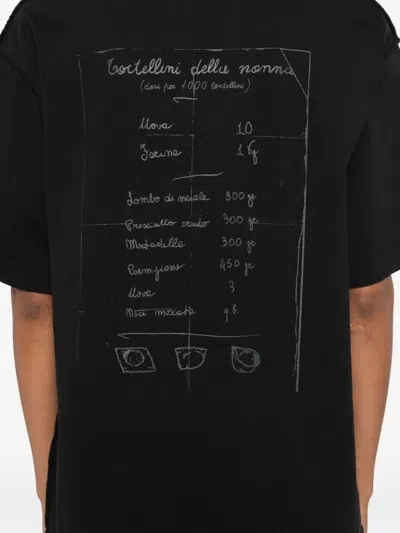 Tortellini della nonna
(dosi per 1000 tortellini)
Uova 10
Farina 1 Kg
Lombo di maiale 300 gr
Prosciutto crudo 300 gr
Mortadella 300 gr
Parmigiano 450 gr
Uova 3
Noce moscata q.b.